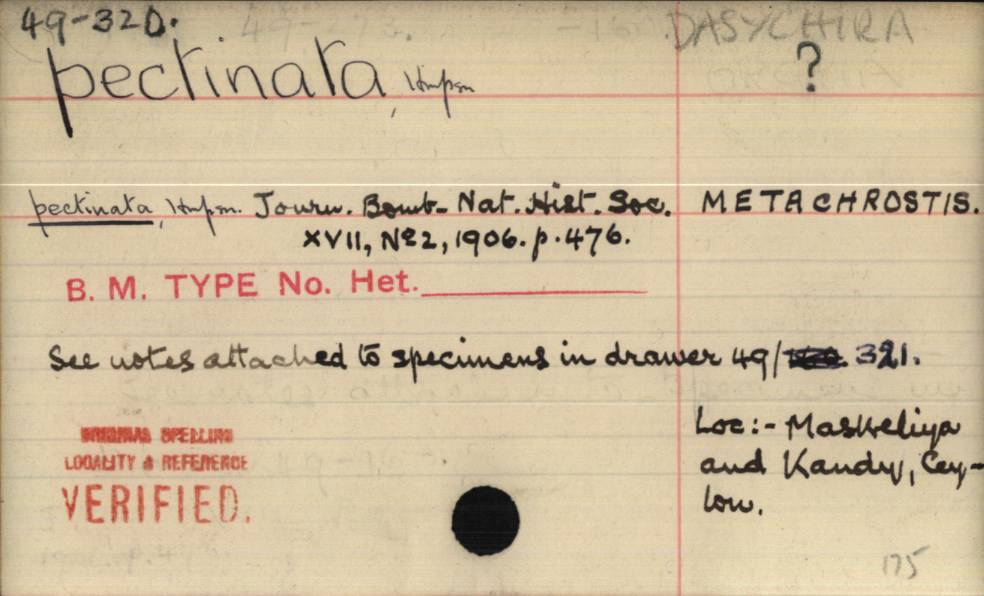 49-320. DASYCHIRA
pectinata, Hmpsn ?
pectinata, Hmpsn. Journ. Bomb. Nat. Hist. Soc. METACHROSTIS.
XVII, No 2, 1906. p. 476.
B. M. TYPE No. Het.
See notes attached to specimens in drawer 49/ 321.
ORIGINAL SPELLING
LOCALITY & REFERENCE
VERIFIED.
Loc:- Maskeliya
and Kandy, Cey-
lon.
175